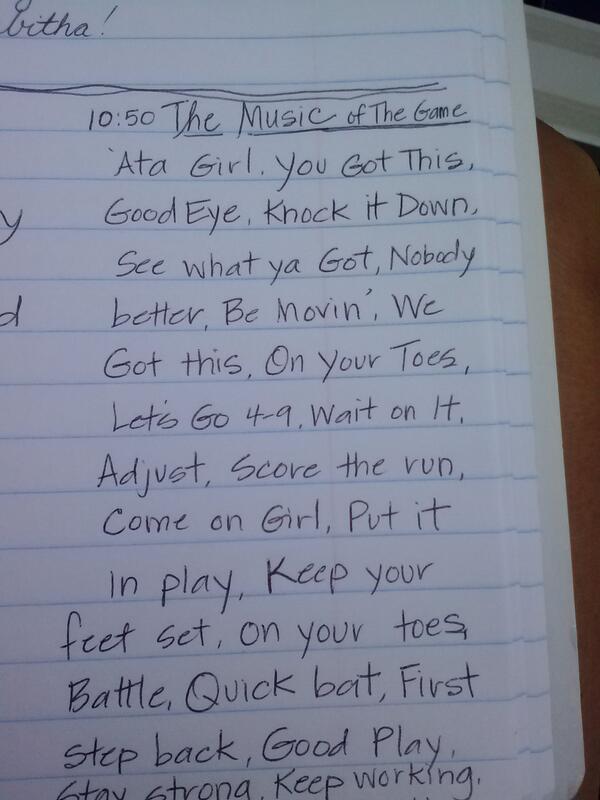 bitha!
10:50 The Music of The Game
'Ata Girl. You Got This,
Good Eye, Knock it Down,
y
See what ya Got, Nobody
d
better, Be Movin', We
Got this, On Your Toes,
Let's Go 4-9, Wait on It,
Adjust, Score the run,
Come on Girl, Put it
in play, Keep your
feet set, on your toes,
Battle, Quick bat, First
step back, Good Play,
Stay strong, Keep working,